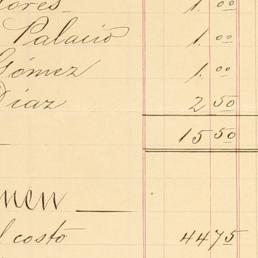 ores 1.00
Palacio 1.00
Gómez 1.00
Díaz 2 50
15 50
men
l costo 44 75